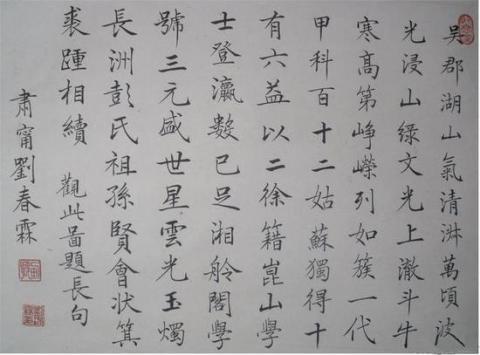 吳郡湖山氣清淋萬頃波
光浸山綠文光上激斗牛
寒高第崢嶸列如簇一代
甲科百十二姑蘇獨得十
有六益以二徐籍崑山學
士登瀛數已足湘舲閣學
號三元盛世星雲光玉燭
長洲彭氏祖孫賢會狀箕
裘踵相續 觀此啚題長句
肅甯劉春霖